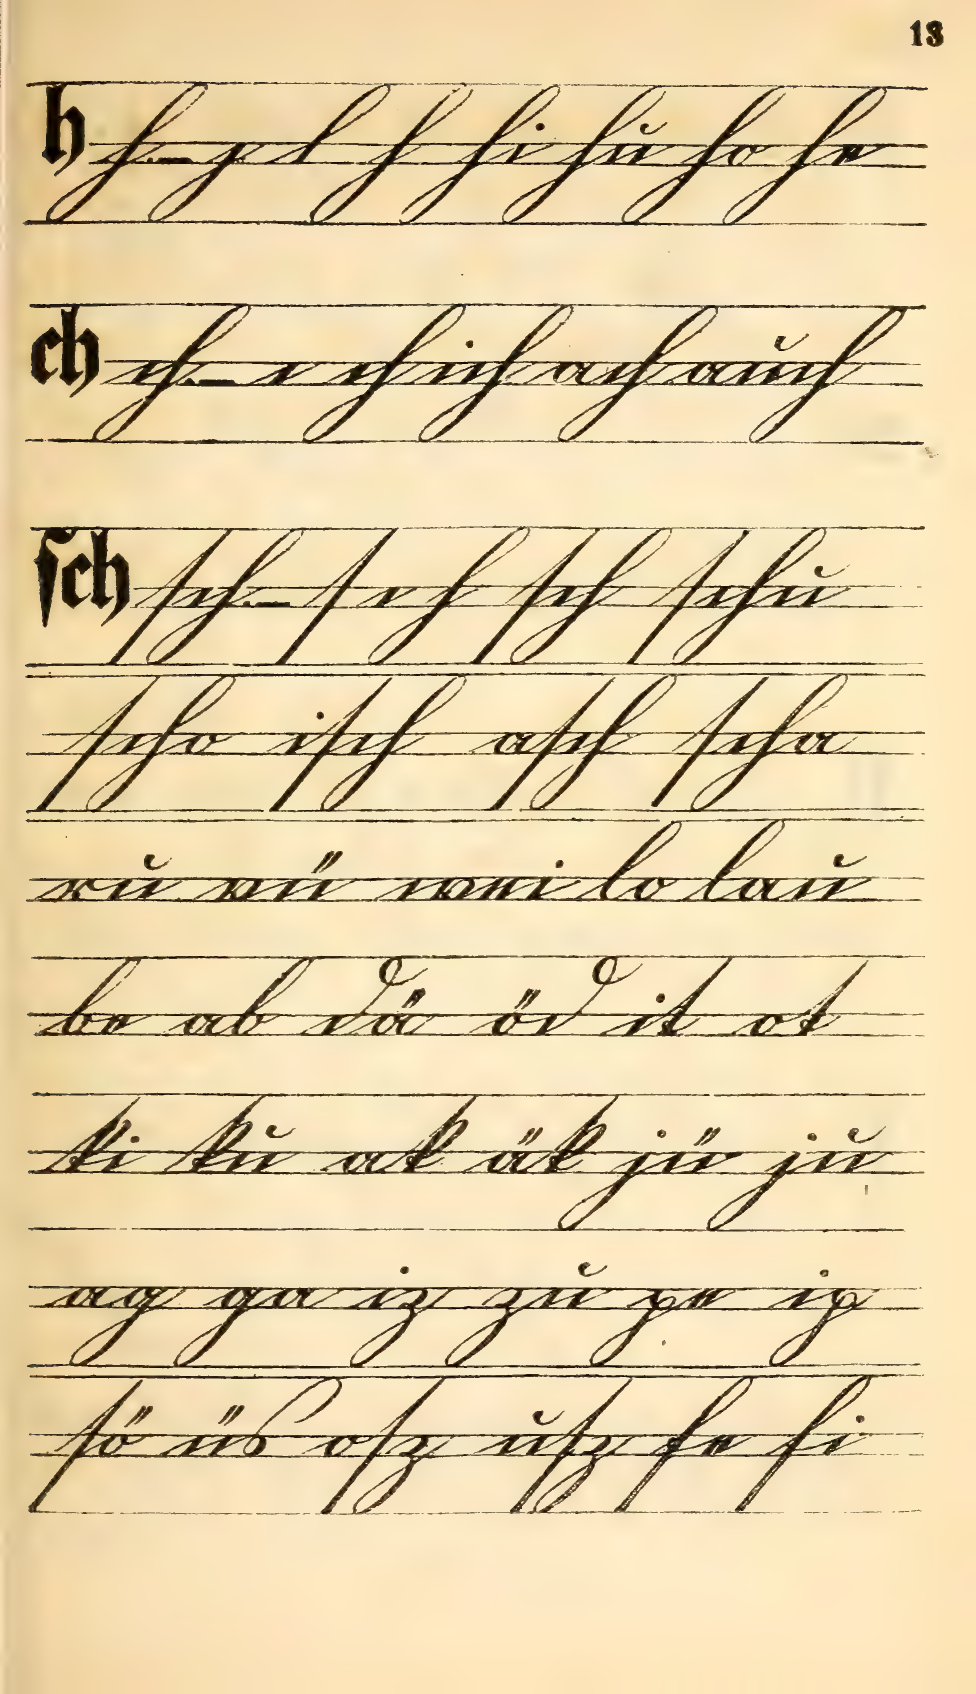 13
h h. — h l h hi hu ho he
ch ch. — c ch ich ach auch
ſch ſch. — ſ c h ſch ſchu
ſcho iſch aſch ſcha
ru nü wei lo lau
be ab dä öd it ot
ki ku ak äk jü ju
ag ga iz zu pe ip
ſö üs oſz uſz fe fi